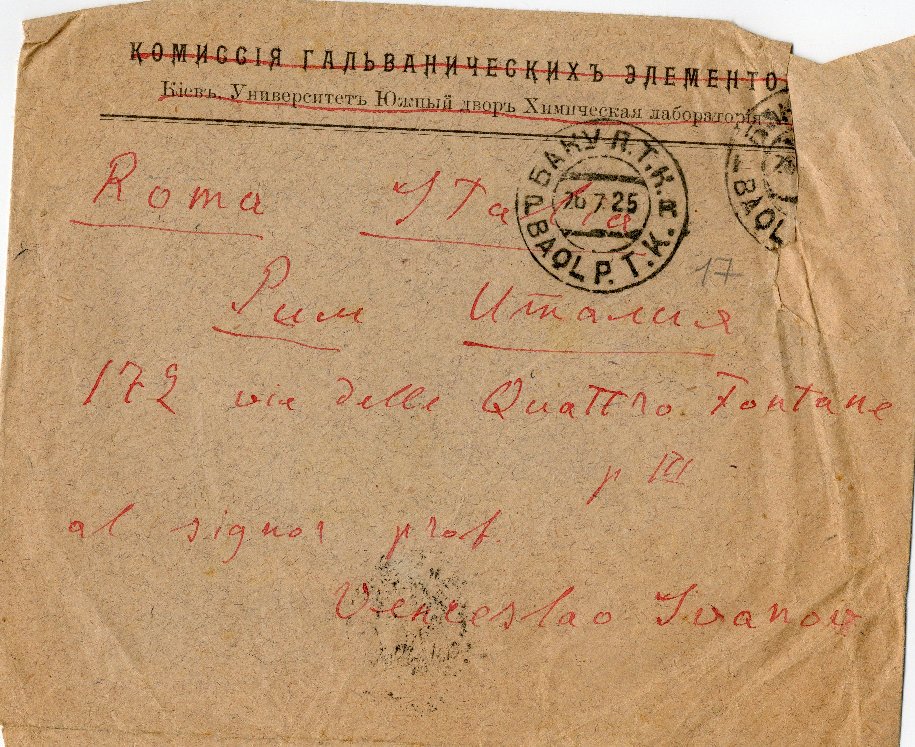 КОМИССІЯ ГАЛЬВАНИЧЕСКИХЪ ЭЛЕМЕНТО
Кіевъ, Университетъ Южный дворъ Химическая лабораторія
БАКУ П.Т.К.
26 7 25
BAQL P.T.K.
BAQL
Roma Italia
17
Рим Италия
172 via delle Quattro Fontane
p III
al signor prof.
Venceslao Ivanov